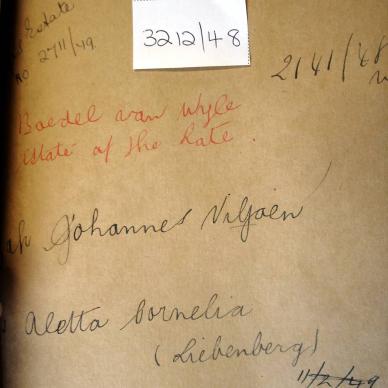 Estate
NO 2711/49
3212/48
2141/48
Boedel van wyle
Estate of the Late.
Johannes Viljoen
Aletta Cornelia
(Liebenberg)
11/2/49